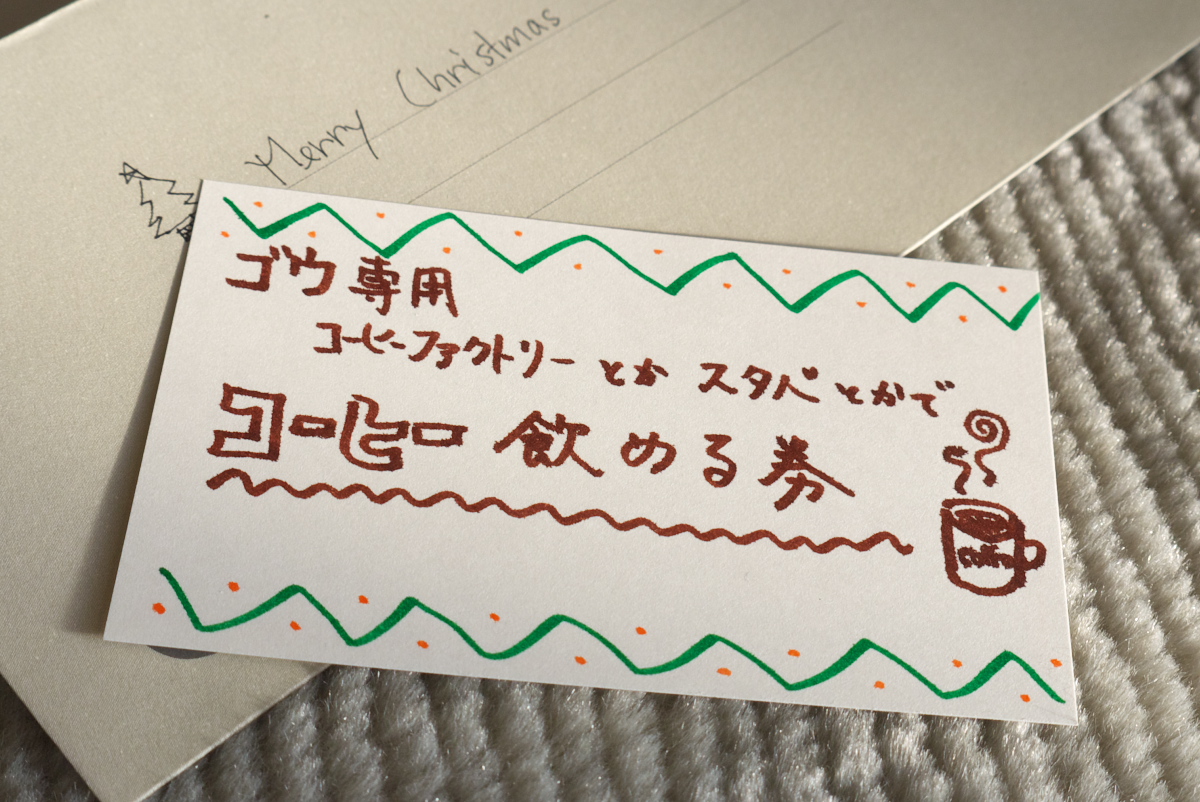 Merry Christmas
ゴウ専用
コーヒーファクトリーとかスタバとかで
コーヒー飲める券